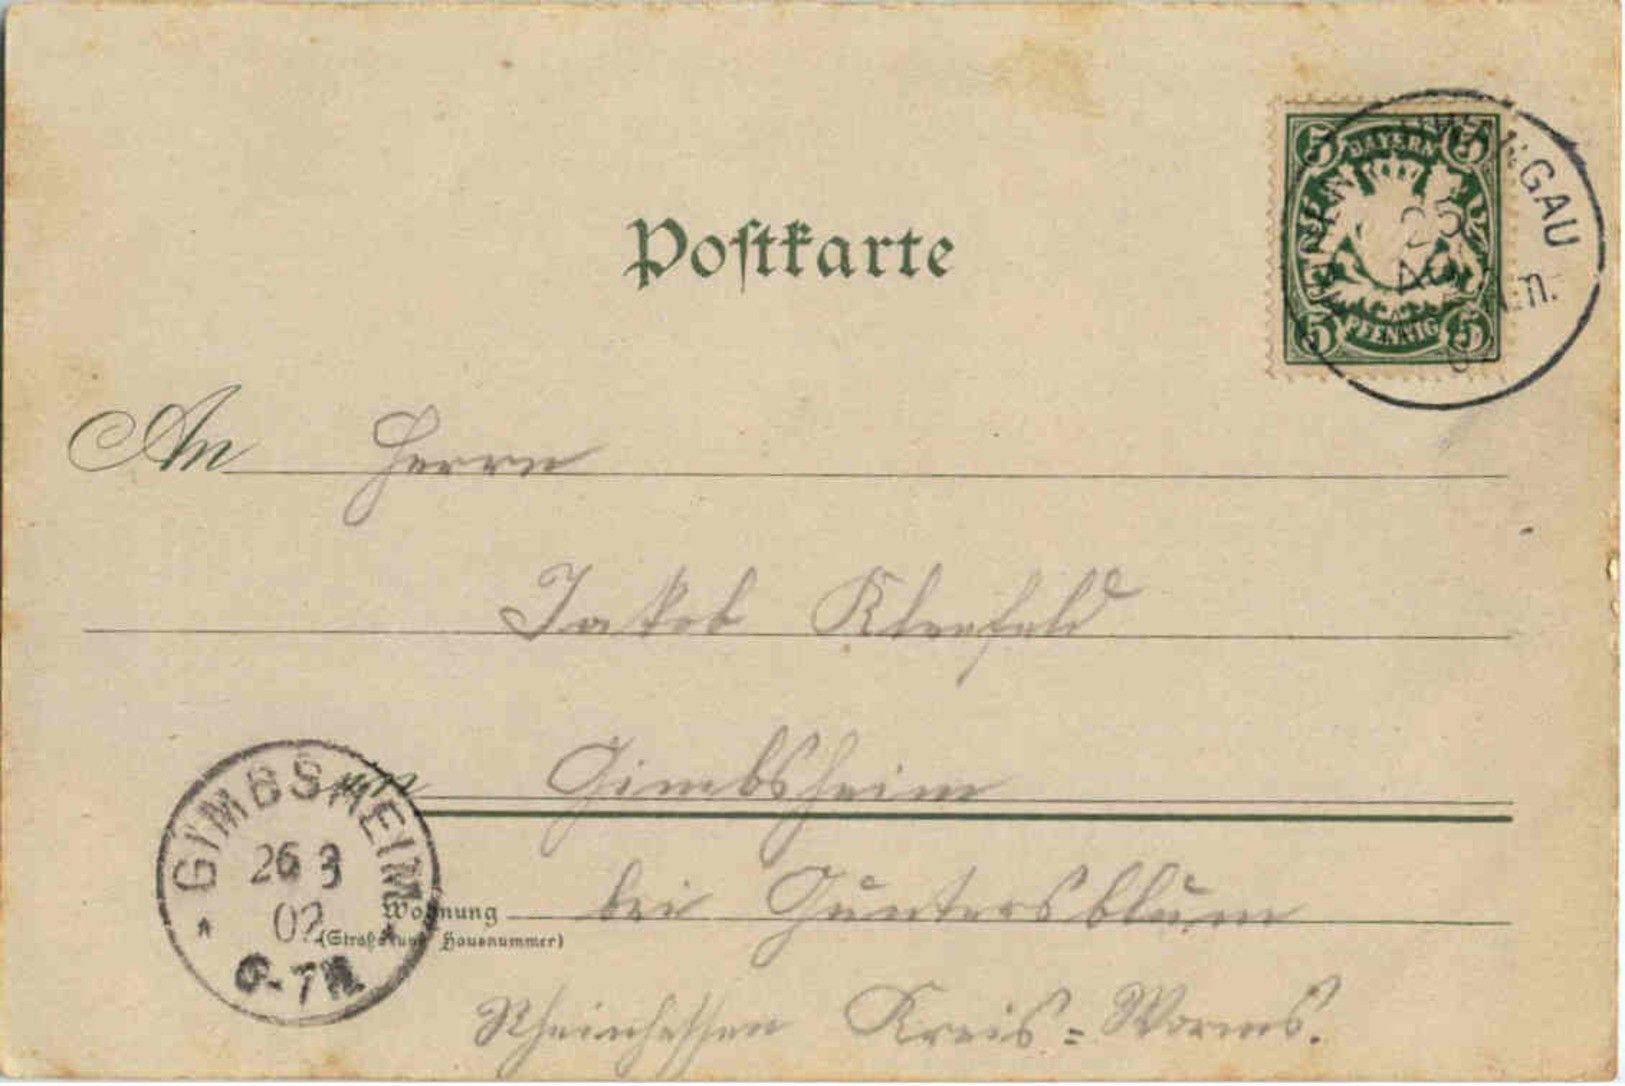 Postkarte
5 BAYERN 5
25
5 PFENNIG 5
An Herrn
Jakob Kleefeld
in Gimbsheim
GIMBSHEIM
26 3
02
6-7N.
Wohnung bei Guntersblum
(Straße und Hausnummer)
Rheinhessen Kreis=Worms.